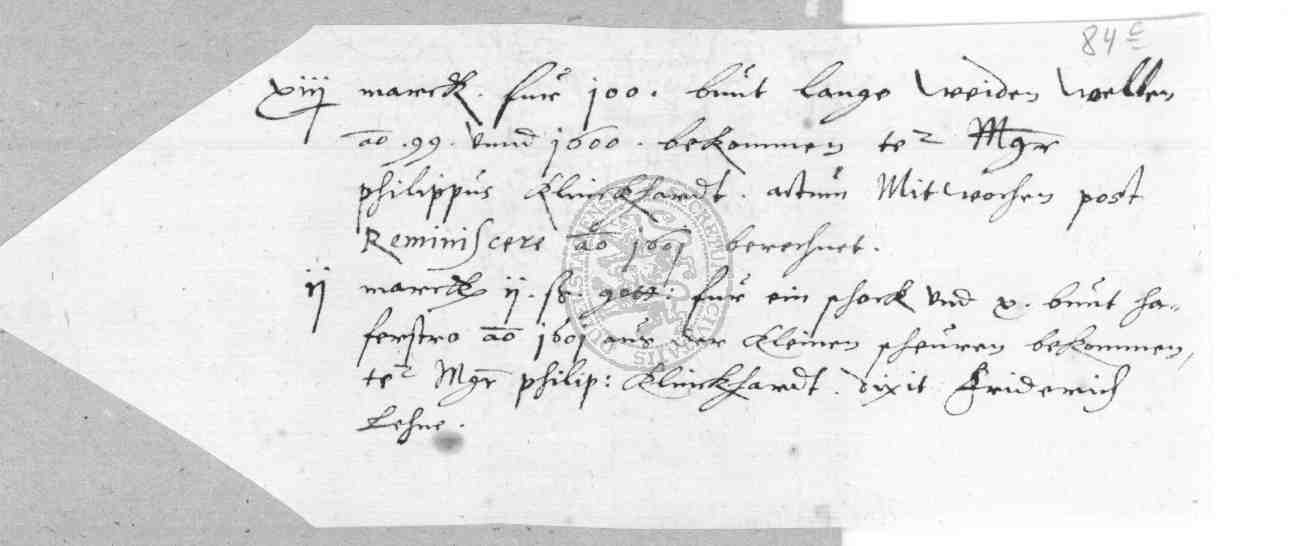 84 c
xiij marck. fur 100. bunt lange Weiden Wellen
ao .99. Vnnd 1600. bekommen te² Mgr
philippus Klinckhardt. actum Mitwochen post
Reminiscere ao 1601 berechnet.
ij marck ij. ß. gott: fur ein schock Vnd x. bunt ha-
ferstro ao 1601 aus der Kleinen scheuren bekommen,
te² Mgr philip: Klinckhardt. dixit Friderich
Lehne.